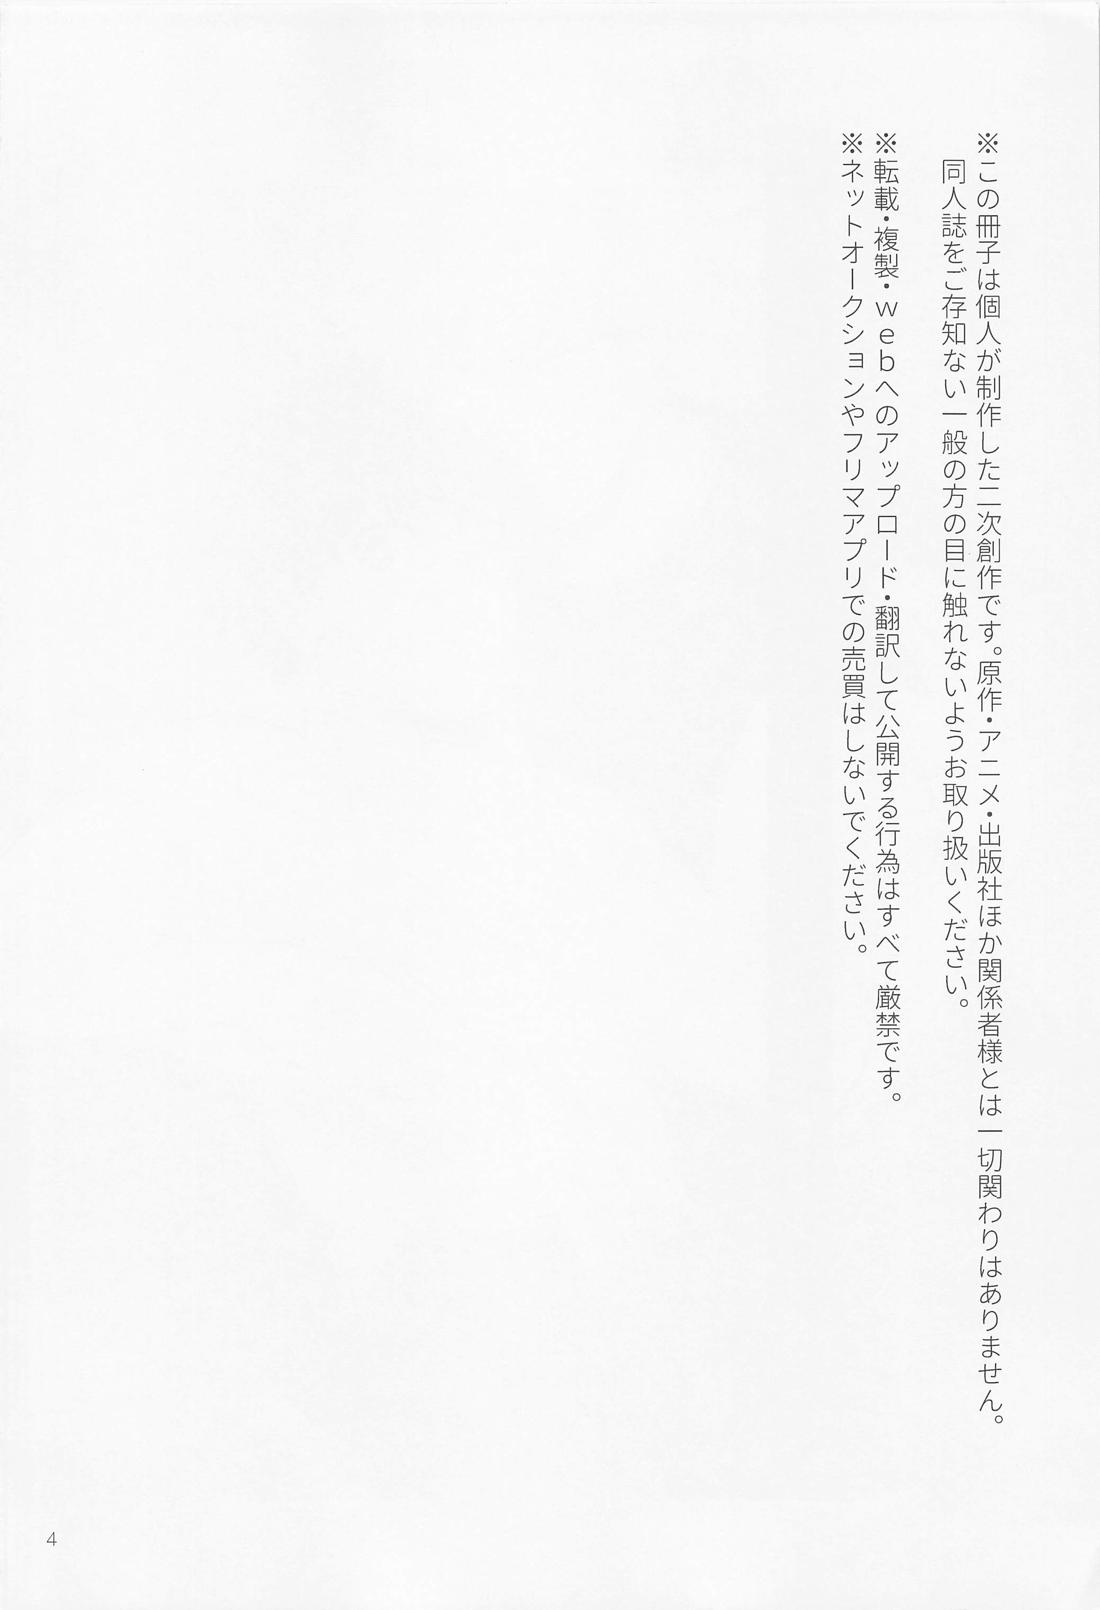 ※この冊子は個人が制作した二次創作です。原作・アニメ・出版社ほか関係者様とは一切関わりはありません。
同人誌をご存知ない一般の方の目に触れないようお取り扱いください。
※転載・複製・webへのアップロード・翻訳して公開する行為はすべて厳禁です。
※ネットオークションやフリマアプリでの売買はしないでください。
4